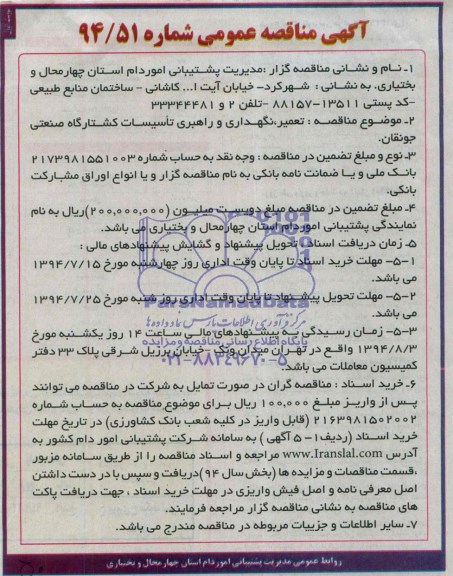 آگهی مناقصه عمومی شماره ۹۴/۵۱
۱ـ نـام و نشـانی مناقصـه گزار :مدیریـت پشـتیبانی اموردام استان چهارمحال و
بختیاری. به نشـانی : شهرکرد- خیابان آیت ا... کاشانی - ساختمان منابع طبیعی
-کد پستی ۱۳۵۱۱-۸۸۱۵۷ -تلفن ۲ و ۳۳۳۴۴۴۸۱
۲- موضـوع مناقصـه : تعمیر،نگهـداری و راهبری تأسیسـات کشتارگاه صنعتی
جونقان.
۳-نوع و مبلغ تضمین در مناقصه : وجه نقد به حساب شماره ۲۱۷۳۹۸۱۵۵۱۰۰۳
بانک ملی و یـا ضمانت نامه بانکی به نام مناقصه گزار و یا انواع اوراق مشـارکت
بانکی.
۴ـ مبلغ تضمین در مناقصه مبلغ دویسـت میلیـون (۲۰۰,۰۰۰,۰۰۰)ریال به نام
نمایندگی پشتیبانی اموردام استان چهارمحال و بختیاری می باشد.
۵ـ زمان دریافت اسناد، تحویل پیشنهاد و گشایش پیشنهادهای مالی :
۱-۵- مهلت خرید اسناد تا پایان وقت اداری روز چهارشنبه مورخ ۱۳۹۴/۷/۱۵
می باشد.
۲-۵- مهلت تحویل پیشـنهاد تا پایان وقت اداری روز شنبه مورخ ۱۳۹۴/۷/۲۵
می باشد.
۳-۵- زمـان رسـیدگی بـه پیشـنهادهای مالـی سـاعت ۱۴ روز یکشـنبه مورخ
۱۳۹۴/۸/۳ واقـع در تهـران میدان ونک -خیابان برزیل شـرقی پلاک ۳۳ دفتر
کمیسیون معاملات می باشد.
۶ـ خریـد اسـناد : مناقصه گران در صورت تمایل به شرکت در مناقصه می توانند
پـس از واریـز مبلـغ ۱۰۰,۰۰۰ ریال بـرای موضوع مناقصه به حسـاب شـماره
۲۱۶۳۹۸۱۵۰۲۰۰۲ (قابل واریز در کلیه شعب بانک کشاورزی) در تاریخ مهلت
خرید اسـناد (ردیف۱-۵ آگهی ) به سامانه شـرکت پشتیبانی امور دام کشور به
آدرس www.Iranslal.com مراجعه و اسـناد مناقصه را از طریق سامانه مزبور
،قسمت مناقصات و مزایده ها (بخش سال ۹۴)دریافت و سپس با در دست داشتن
اصل معرفی نامه و اصل فیش واریزی در مهلت خرید اسـناد ، جهت دریافت پاکت
های مناقصه به نشانی مناقصه گزار مراجعه فرمایند.
۷ـ سایر اطلاعات و جزییات مربوطه در مناقصه مندرج می باشد.
ParsNamadData
مرکز فرآوری اطلاعات پارس نماد داده ها
پایگاه اطلاع رسانی مناقصه و مزایده
۰۲۱-۸۸۳۴۹۶۷۰-۵
روابط عمومی مدیریت پشتیبانی اموردام استان چهارمحال و بختیاری